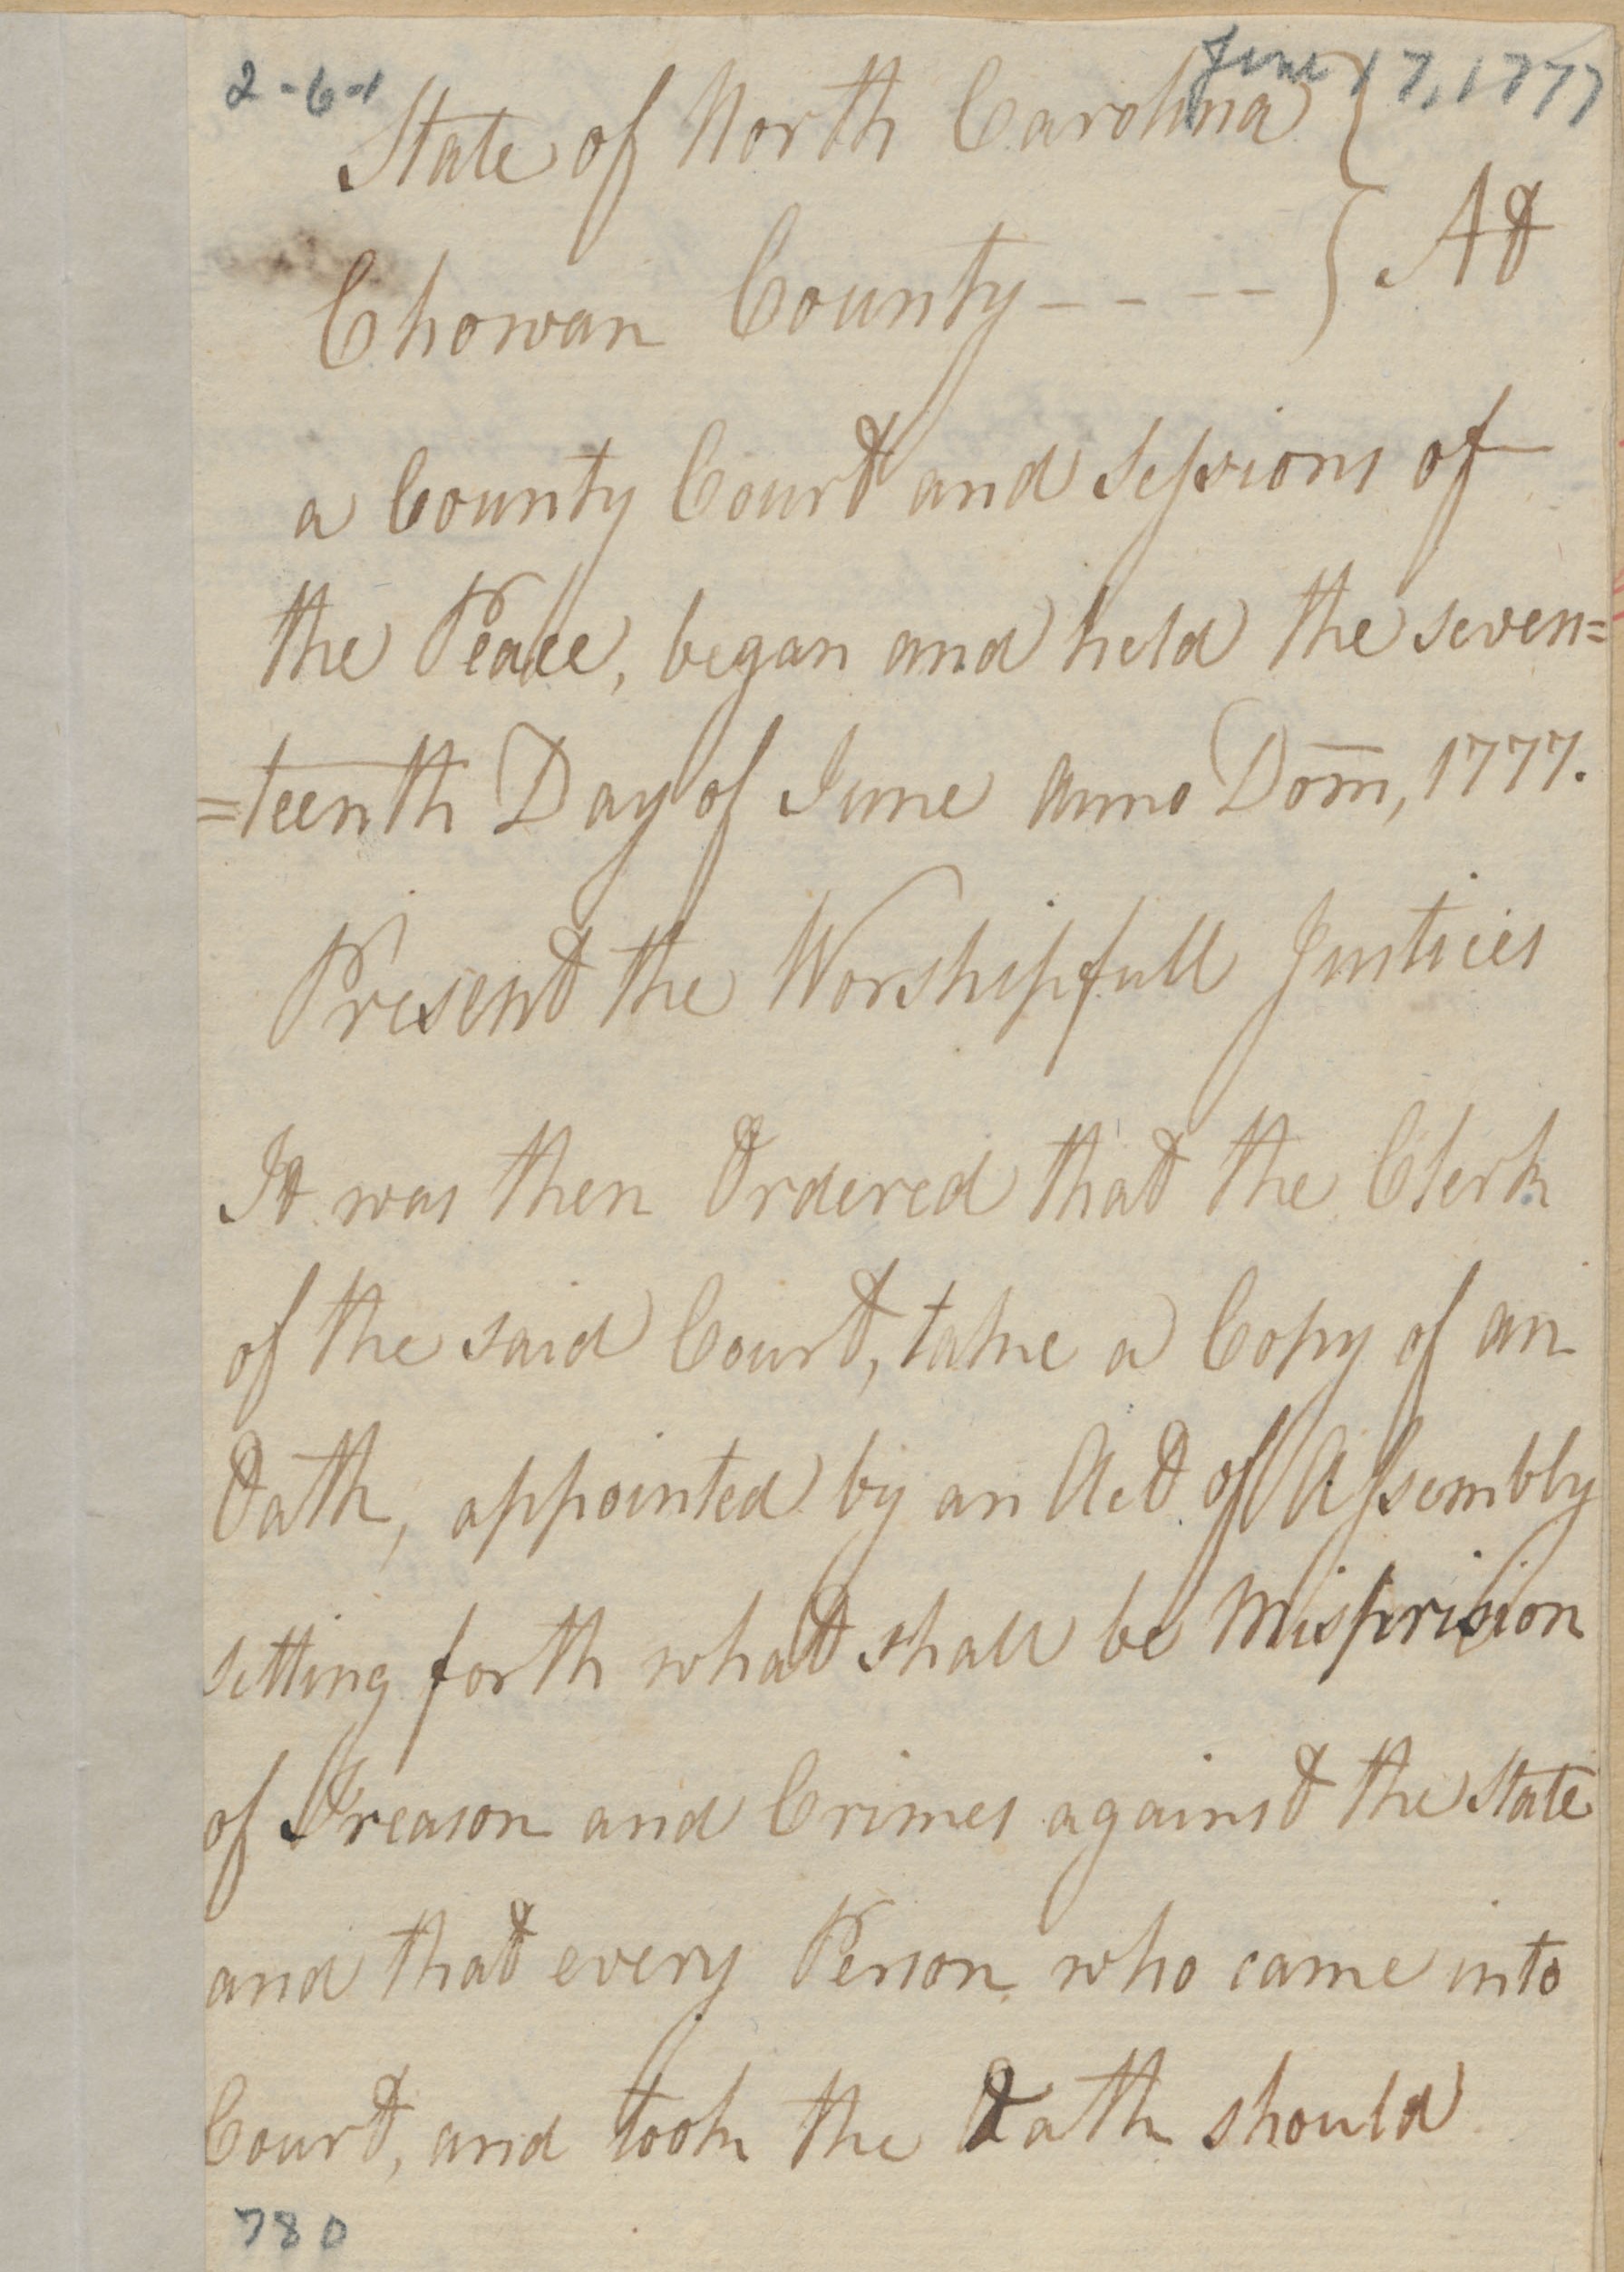 2-6-1
June 17, 1777
State of North Carolina }
Chowan County ---- } At
a County Court and Sessions of
the Peace, began and held the seven=
=teenth Day of June Anno Dom, 1777.
Present the Worshipfull Justices
It was then Ordered that the Clerk
of the said Court, take a Copy of an
Oath, appointed by an Act of Assembly
setting forth what shall be Misprision
of Treason and Crimes against the State
and that every Person who came into
Court, and took the Oath should
780